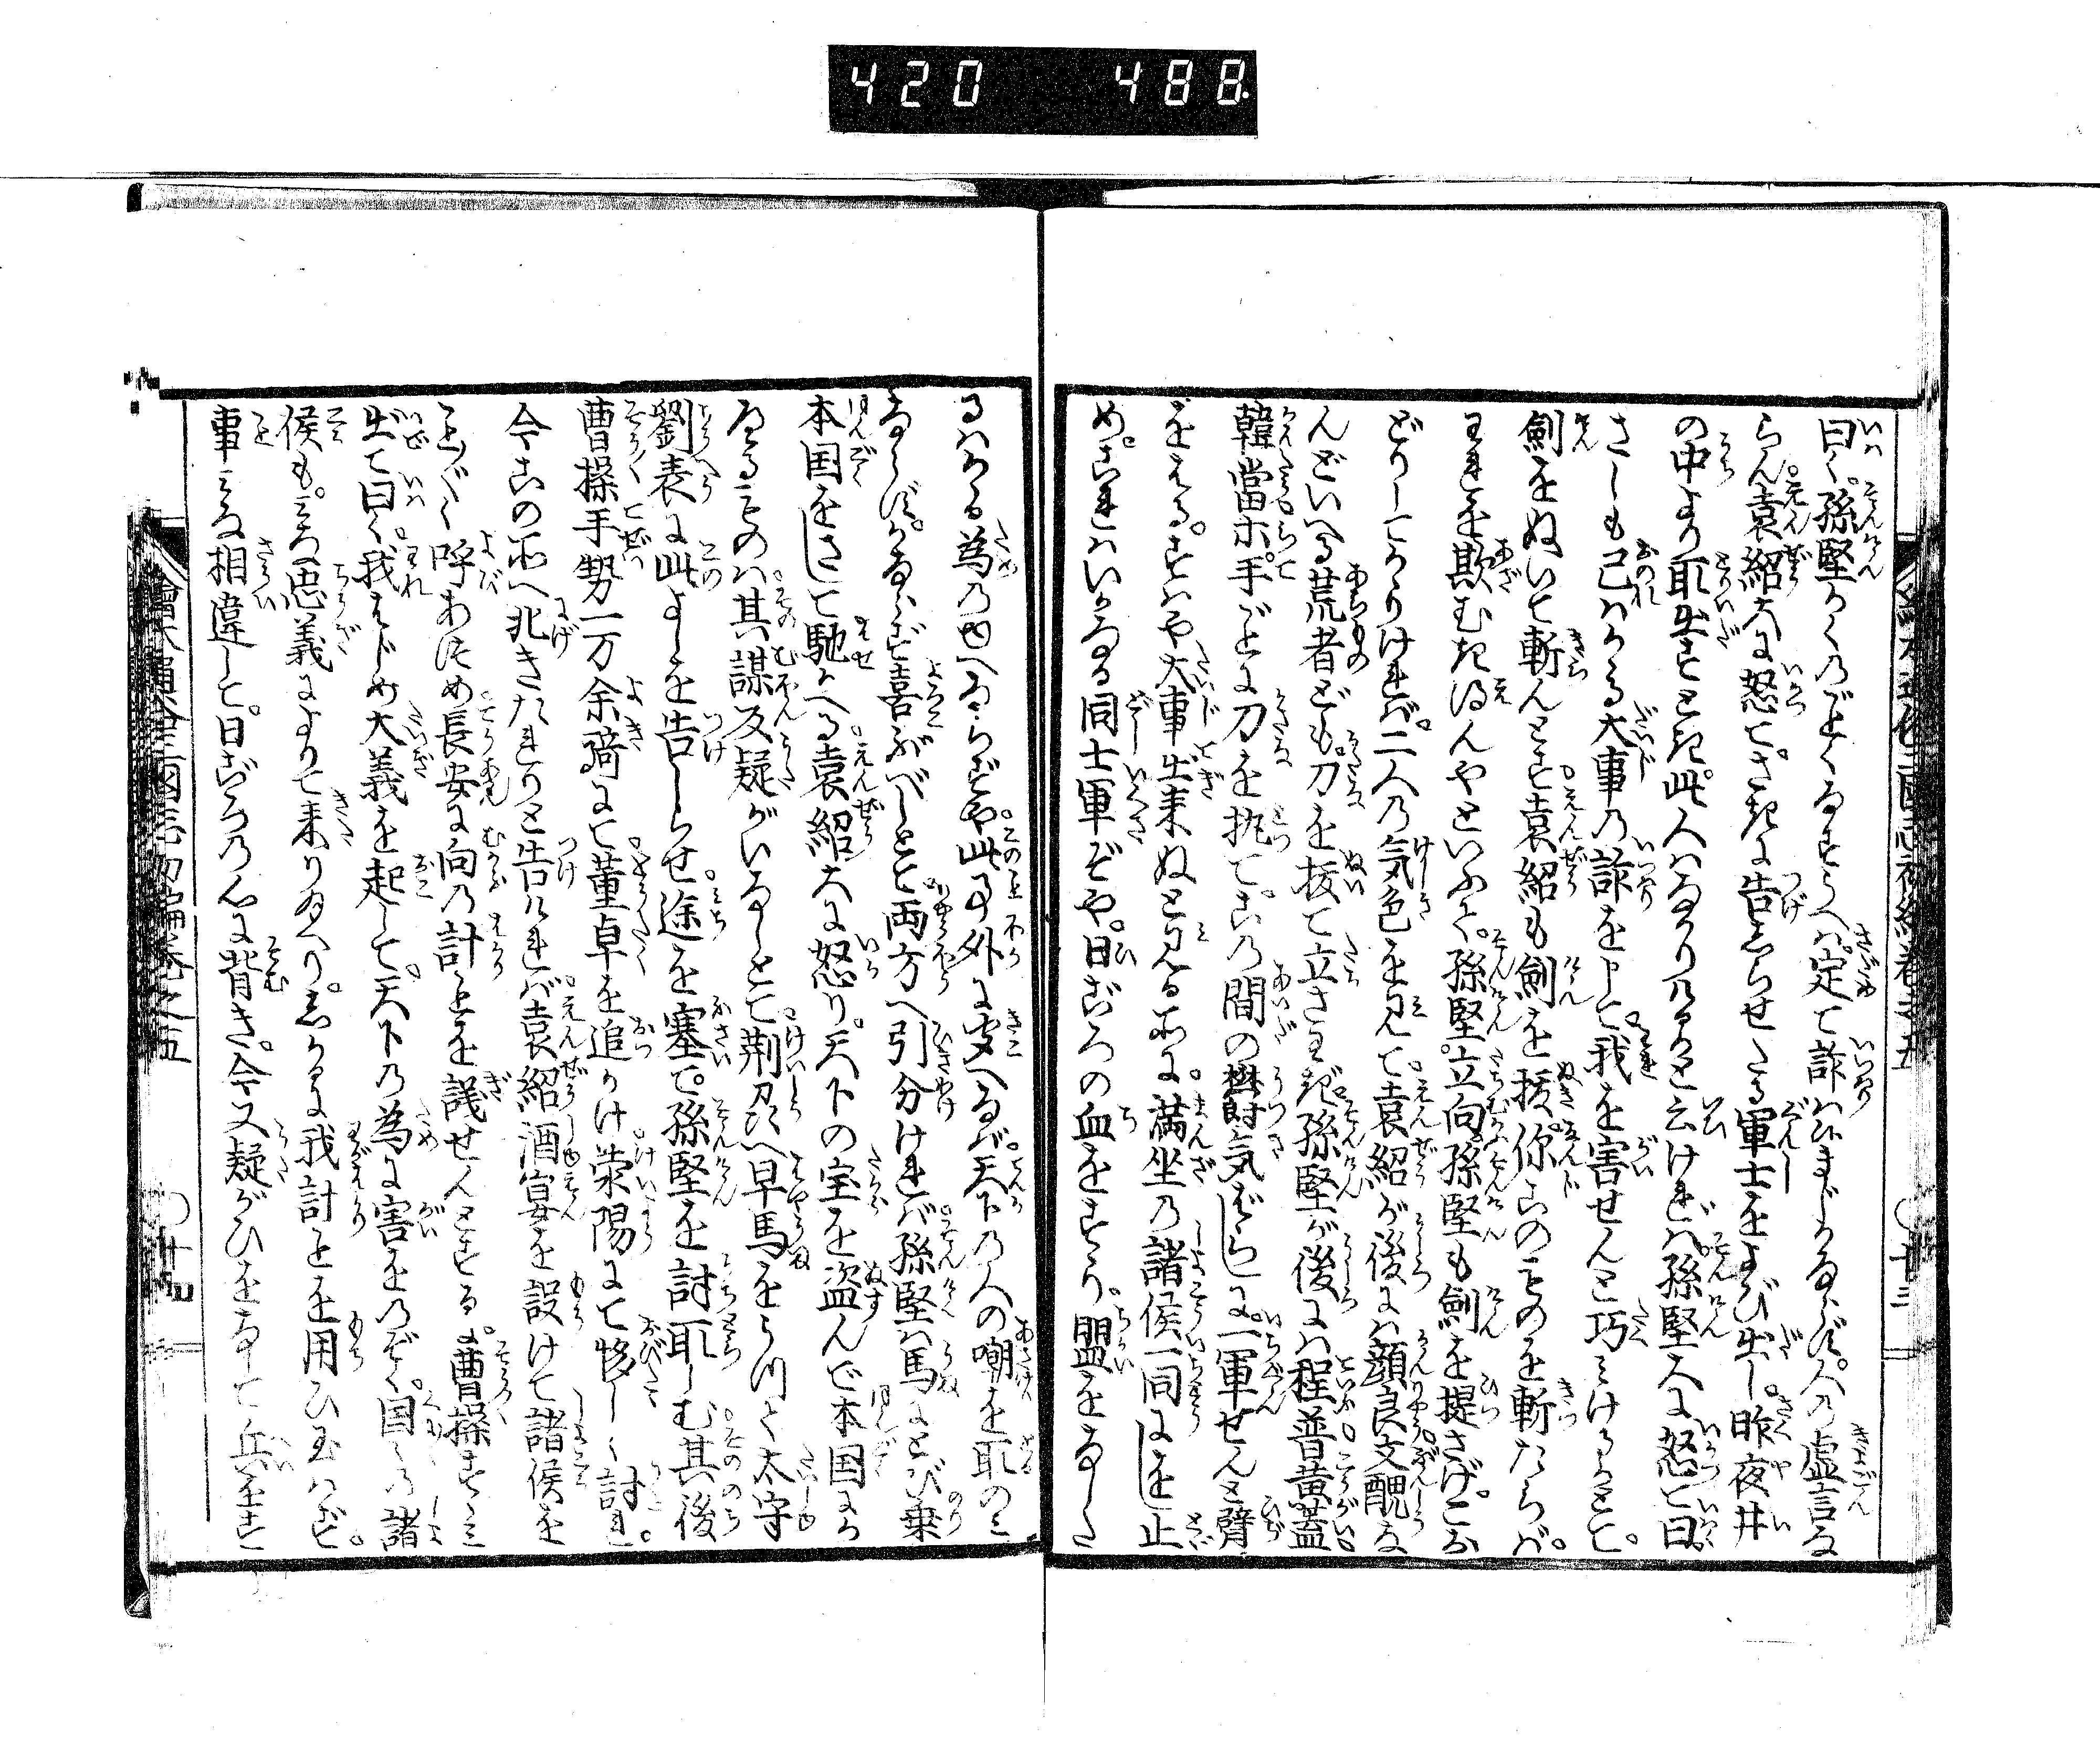 420 488
曰く孫堅かくのごとくなるうへは定て詐はまじかるべし人の虚言な
らん袁紹大に怒てさきに告しらせたる軍士をよび出し昨夜井
の中より取出すとき此人はなかりけるかと云ければ孫堅大に怒て曰
さしも己はかる大事の詐をして我を害せんと巧みけるかとて
剣をぬいて斬んとす袁紹も剣を抜你このものを斬たらば
われを欺むき得んやといふて孫堅立向孫堅も剣を提さげこな
どりしてかかりければ二人の気色を見て袁紹が後には顔良文醜な
んどいへる荒者ども刀を抜て立さわぎ孫堅が後には程普黄蓋
韓當ホ手ごとに刀を執てこの間の鬱気ばらしに一軍せんと臂
をはる すはや大事出来ぬと見る所に満坐の諸侯一同にを止
め これはいかなる同士軍ぞや日ごろの血をすすり盟をなした
るはかる為のゆへならずや此事外に聞へなば天下の人の嘲を取のみ
ならずかならず喜ぶべしとて両方へ引分ければ孫堅は馬にとび乗
本国をさして馳かへる袁紹大に怒り天下の宝を盗んで本国にか
へるものは其謀反疑がいなしとて荊州へ早馬をうつて太守
劉表に此よしを告しらせ途を塞で孫堅を討取しむ其後
曹操手勢一万余騎にて董卓を追かけ滎陽にて夥しく討れ
今この所へ北きたれりと告ければ袁紹酒宴を設けて諸侯を
ことごとく呼あつめ長安に向の計ことを議せんとする曹操すゝみ
出て曰く我はじめ大義を起して天下の為に害をのぞく国々の諸
侯もみな忠義によりて来り玉へりしかるに我計ことを用ひ玉はず
事みな相違して日ごろの心に背き今又疑がひをなして兵をす
繪本通俗三國志初編巻之五
〇十三